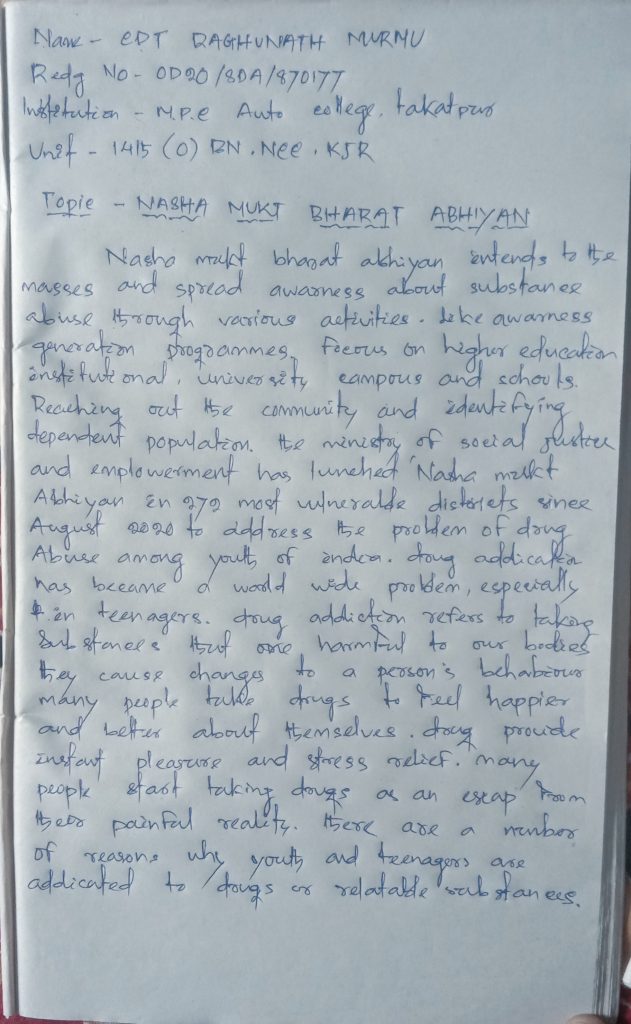 Name - CDT RAGHUNATH MURMU
Redg No - OD20/SDA/870177
Institution - M.P.C Auto college, takatpur
Unit - 1415 (O) BN. Ncc, KJR
Topic - NASHA MUKT BHARAT ABHIYAN
Nasha mukt bharat abhiyan intends to the
masses and spread awarness about substance
abuse through various activities. like awarness
generation programmes, Foccus on higher education
institutional, university campous and schools.
Reaching out the community and identifying
dependent population. the ministry of social justice
and emplowerment has lunched Nasha mukt
Abhiyan in 272 most vulnerable districts since
August 2020 to address the problem of drug
Abuse among youth of india. drug addication
has became a world wide problem, especially
in teenagers. drug addiction refers to taking
Substances that are harmful to our bodies
they cause changes to a person's behabiour
many people take drugs to feel happier
and better about themselves. drug provide
instant pleasure and stress relief. many
people start taking drugs as an escap from
their painful reality. there are a number
of reasons why youth and teenagers are
addicated to drugs or relatable substances.